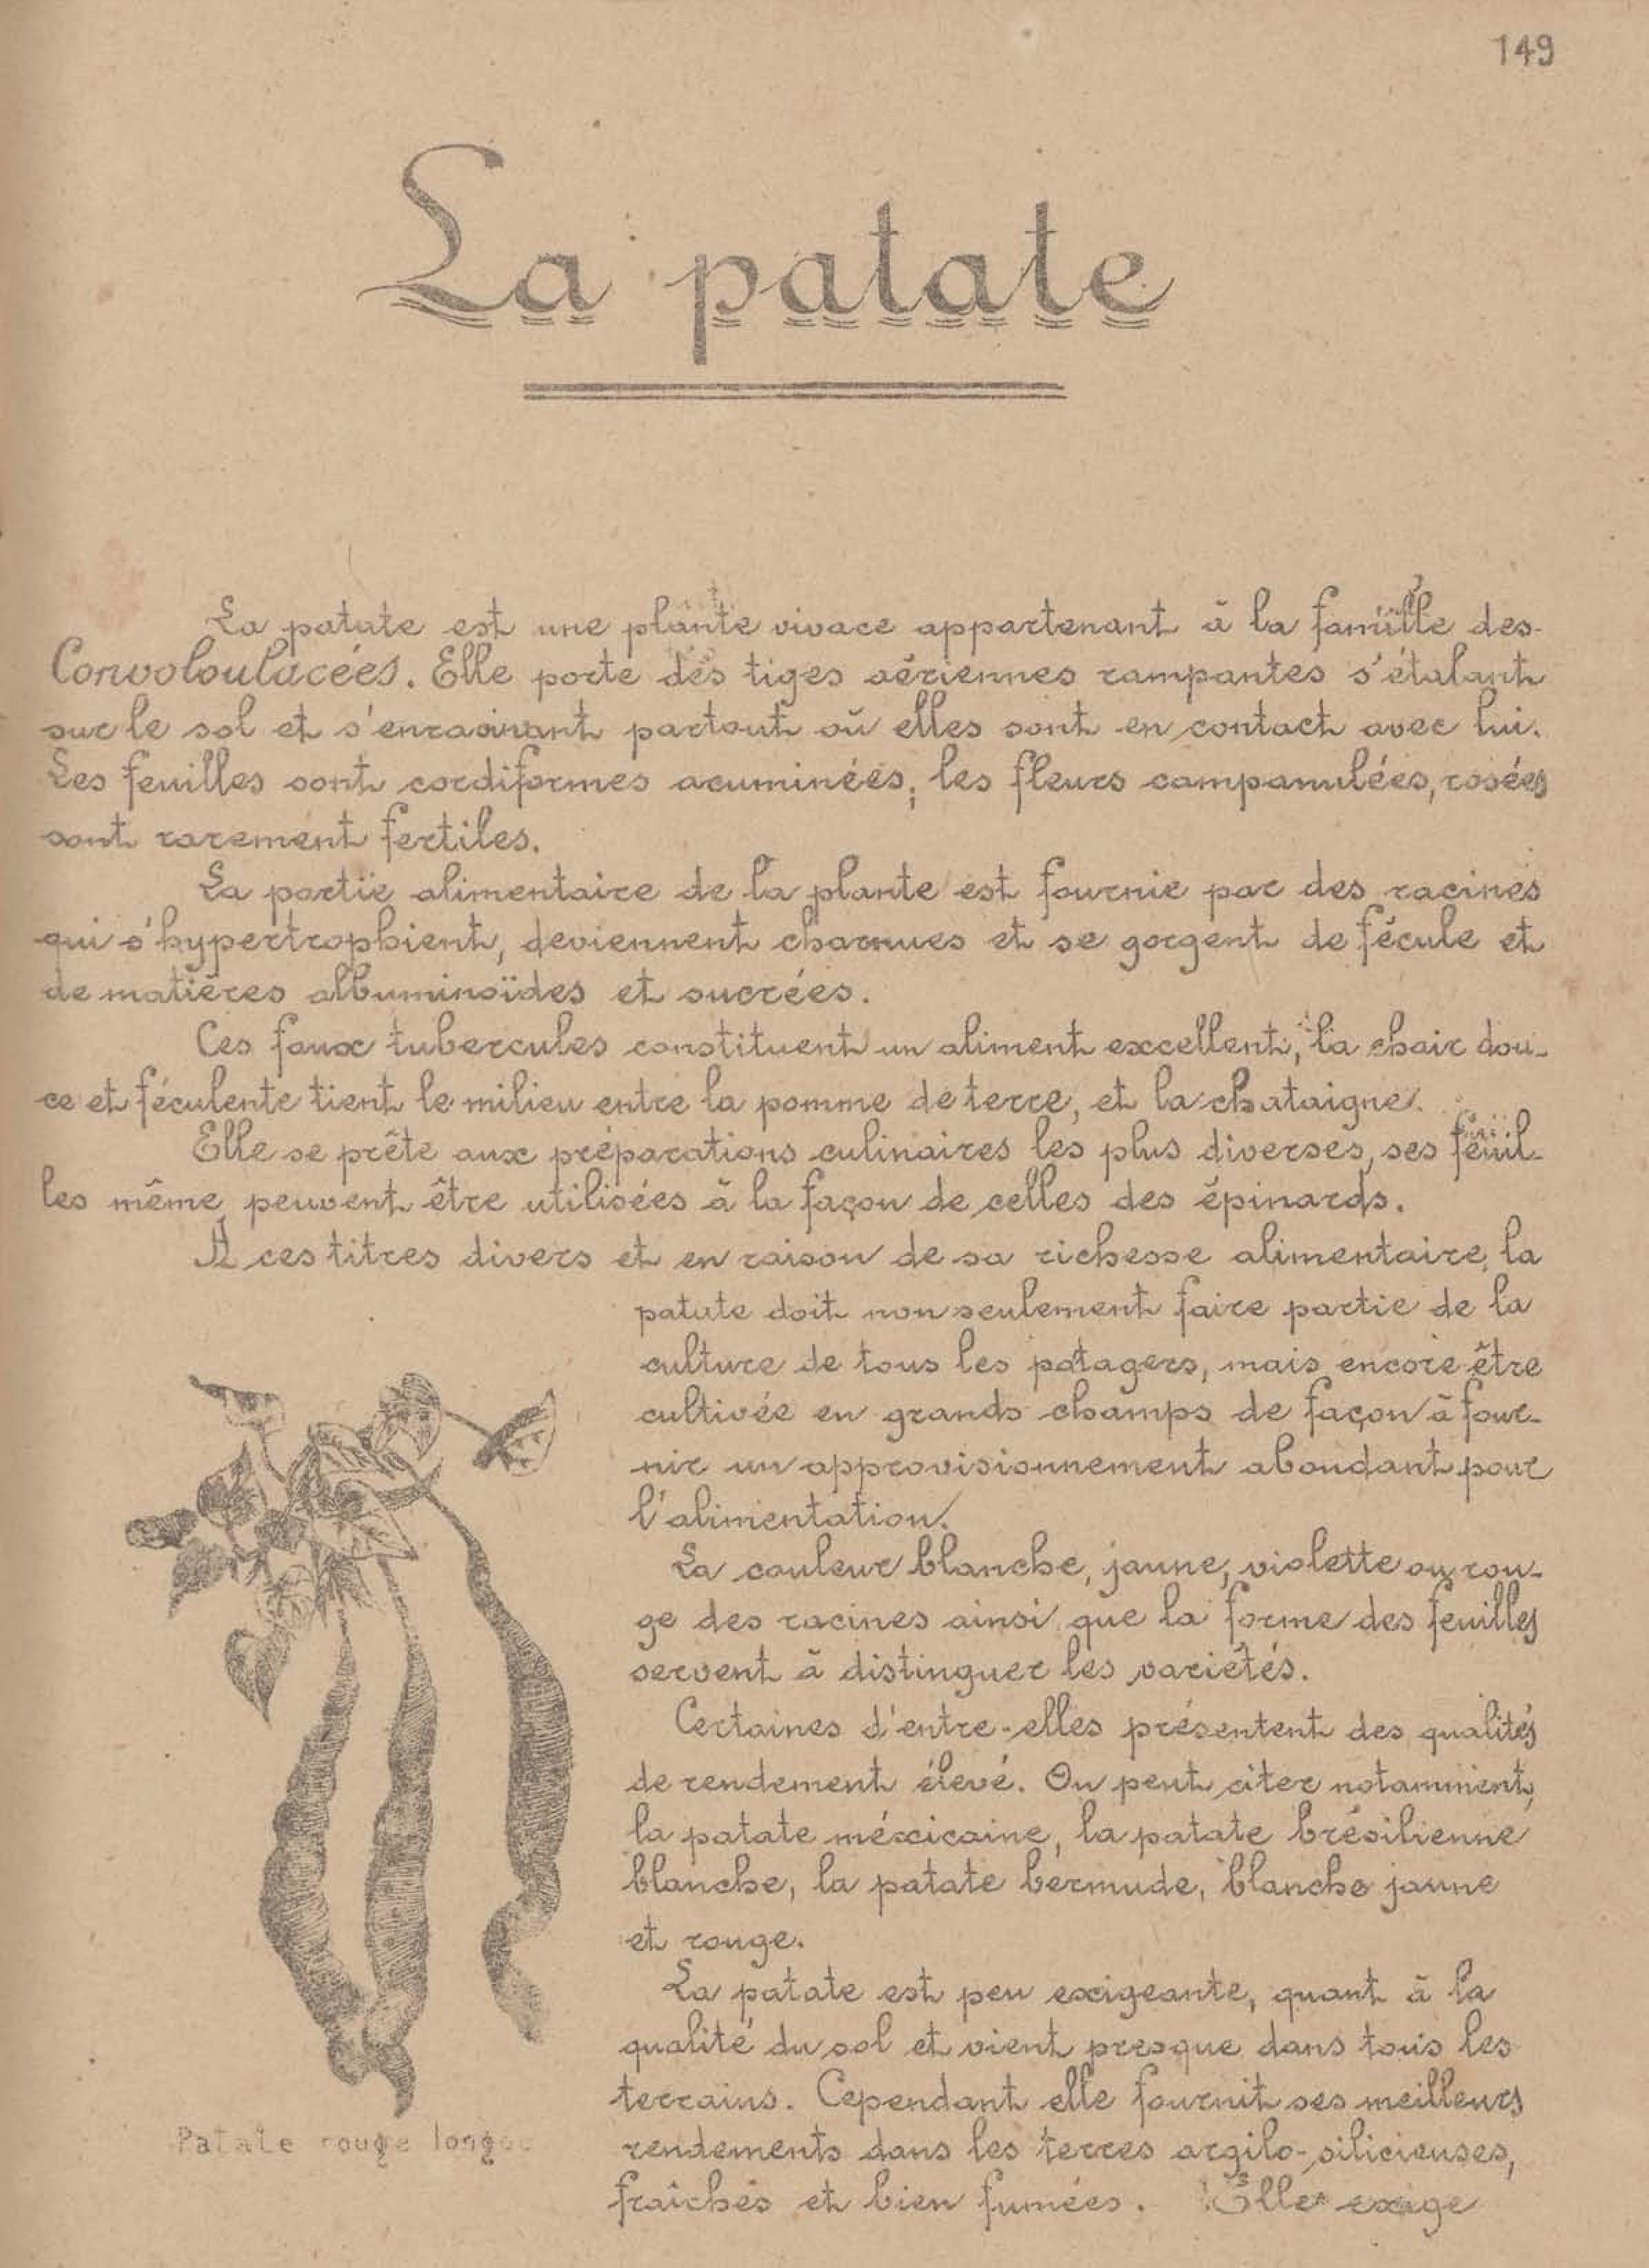 149
La patate
La patate est une plante vivace appartenant à la famille des
Convoloulacées. Elle porte des tiges aériennes rampantes s'étalant
sur le sol et s'enracinant partout où elles sont en contact avec lui.
Les feuilles sont cordiformes acuminées, les fleurs campanulées, rosées
sont rarement fertiles.
La partie alimentaire de la plante est fournie par des racines
qui s'hypertrophient, deviennent charnues et se gorgent de fécule et
de matières albuminoïdes et sucrées.
Ces faux tubercules constituent un aliment excellent, la chair dou-
ce et féculente tient le milieu entre la pomme de terre, et la chataigne.
Elle se prête aux préparations culinaires les plus diverses, ses feuil-
les même peuvent être utilisées à la façon de celles des épinards.
A ces titres divers et en raison de sa richesse alimentaire, la
patate doit non seulement faire partie de la
culture de tous les potagers, mais encore être
cultivée en grands champs de façon à four-
nir un approvisionnement abondant pour
l'alimentation.
La couleur blanche, jaune, violette ou rou-
ge des racines ainsi que la forme des feuilles
servent à distinguer les variétés.
Certaines d'entre-elles présentent des qualités
de rendement élevé. On peut citer notamment,
la patate méxicaine, la patate brésilienne
blanche, la patate bermude, blanche jaune
et rouge.
La patate est peu exigeante, quant à la
qualité du sol et vient presque dans tous les
terrains. Cependant elle fournit ses meilleurs
rendements dans les terres argilo-silicieuses,
fraîches et bien fumées. Elle exige
Patate rouge longue